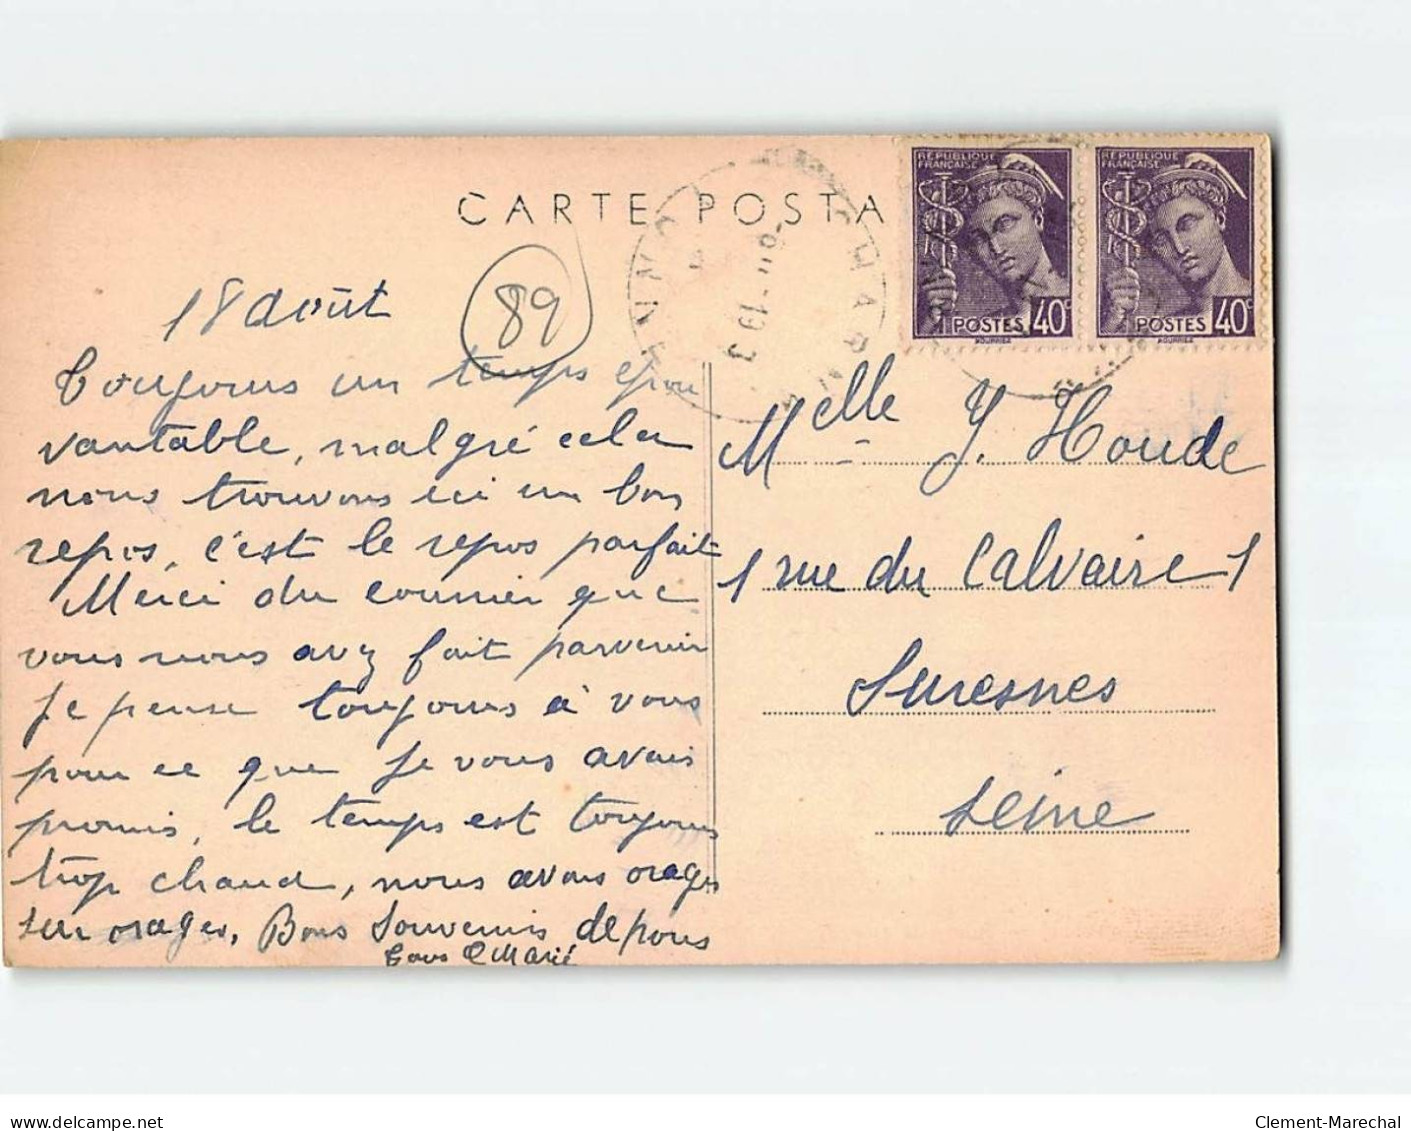 CARTE POSTA
RÉPUBLIQUE FRANÇAISE
POSTES 40c
RÉPUBLIQUE FRANÇAISE
POSTES 40c
18 août
89
Toujours un temps épou
vantable, malgré cela
nous trouvons ici un bon
repos, c'est le repos parfait
Merci du courrier que
vous nous avez fait parvenir
Je pense toujours à vous
pour ce que je vous avais
promis, le temps est toujours
trop chaud, nous avons orages
sur orages, Bons Souvenirs de
Marie
Melle Y. Houde
1 rue du Calvaire 1
Suresnes
Seine
delcampe.net
Clement-Marechal